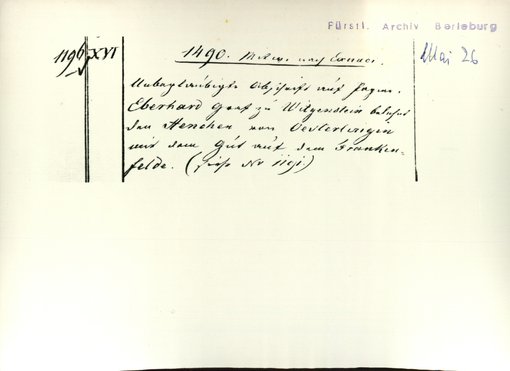 Fürstl. Archiv Berleburg
1196 XVI
1490. Mittw. nach Cornaci.
Mai 26
Unbeglaubigte Abschrift auf Papier.
Eberhard Graf zu Witgenstein belehnt
den Henchen von Oesterlingen
mit dem Gut auf dem Franken-
felde. (siehe No 1191.)